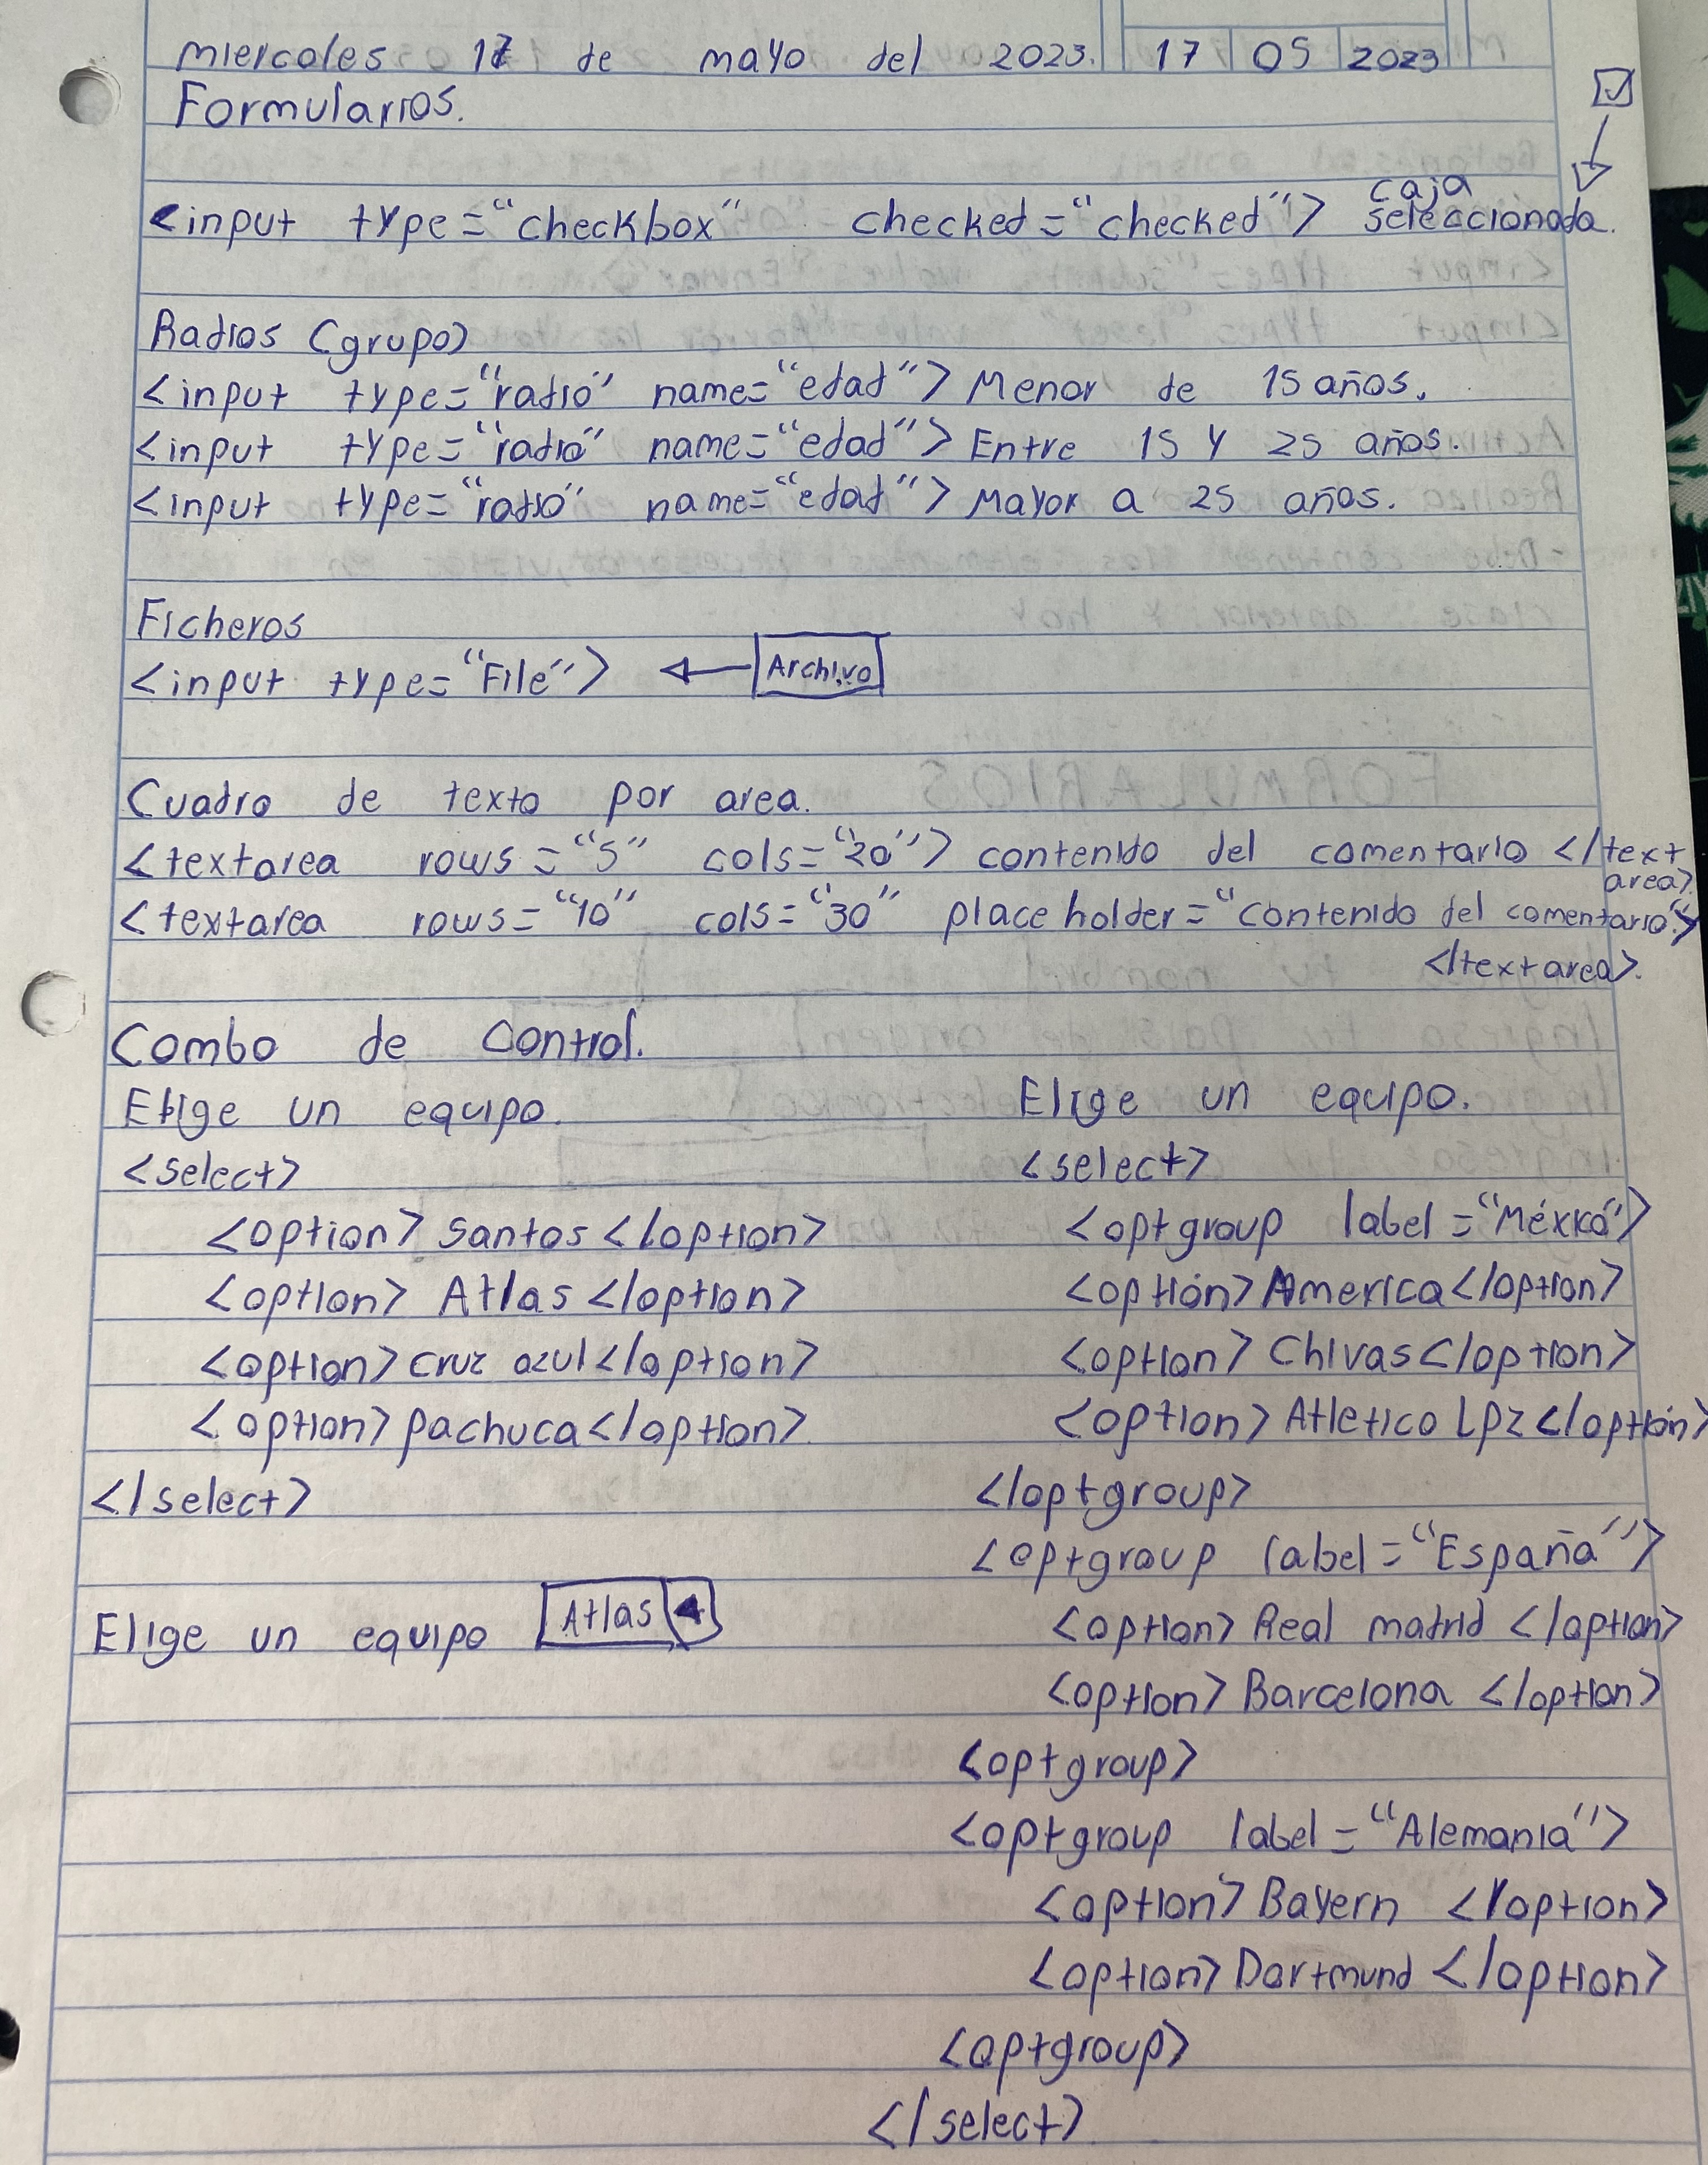 miercoles 17 de mayo del 2023. 17 05 2023
Formularios.
<input type="checkbox" checked="checked"> caja seleccionada.
Radios (grupo)
<input type="radio" name="edad"> Menor de 15 años.
<input type="radio" name="edad"> Entre 15 y 25 años.
<input type="radio" name="edad"> Mayor a 25 años.
Ficheros
<input type="File"> Archivo
Cuadro de texto por area.
<textarea rows="5" cols="20"> contenido del comentario </text
area>
<textarea rows="10" cols="30" place holder="contenido del comentario">
</textarea>.
Combo de Control.
Elige un equipo.
<select>
<option> Santos </option>
<option> Atlas </option>
<option> cruz azul </option>
<option> pachuca </option>
</select>
Elige un equipo Atlas
Elige un equipo.
<select>
<optgroup label="México">
<option> America </option>
<option> Chivas </option>
<option> Atletico Lpz </option>
</optgroup>
<optgroup label="España">
<option> Real madrid </option>
<option> Barcelona </option>
<optgroup>
<optgroup label="Alemania">
<option> Bayern </option>
<option> Dortmund </option>
<optgroup>
</select>